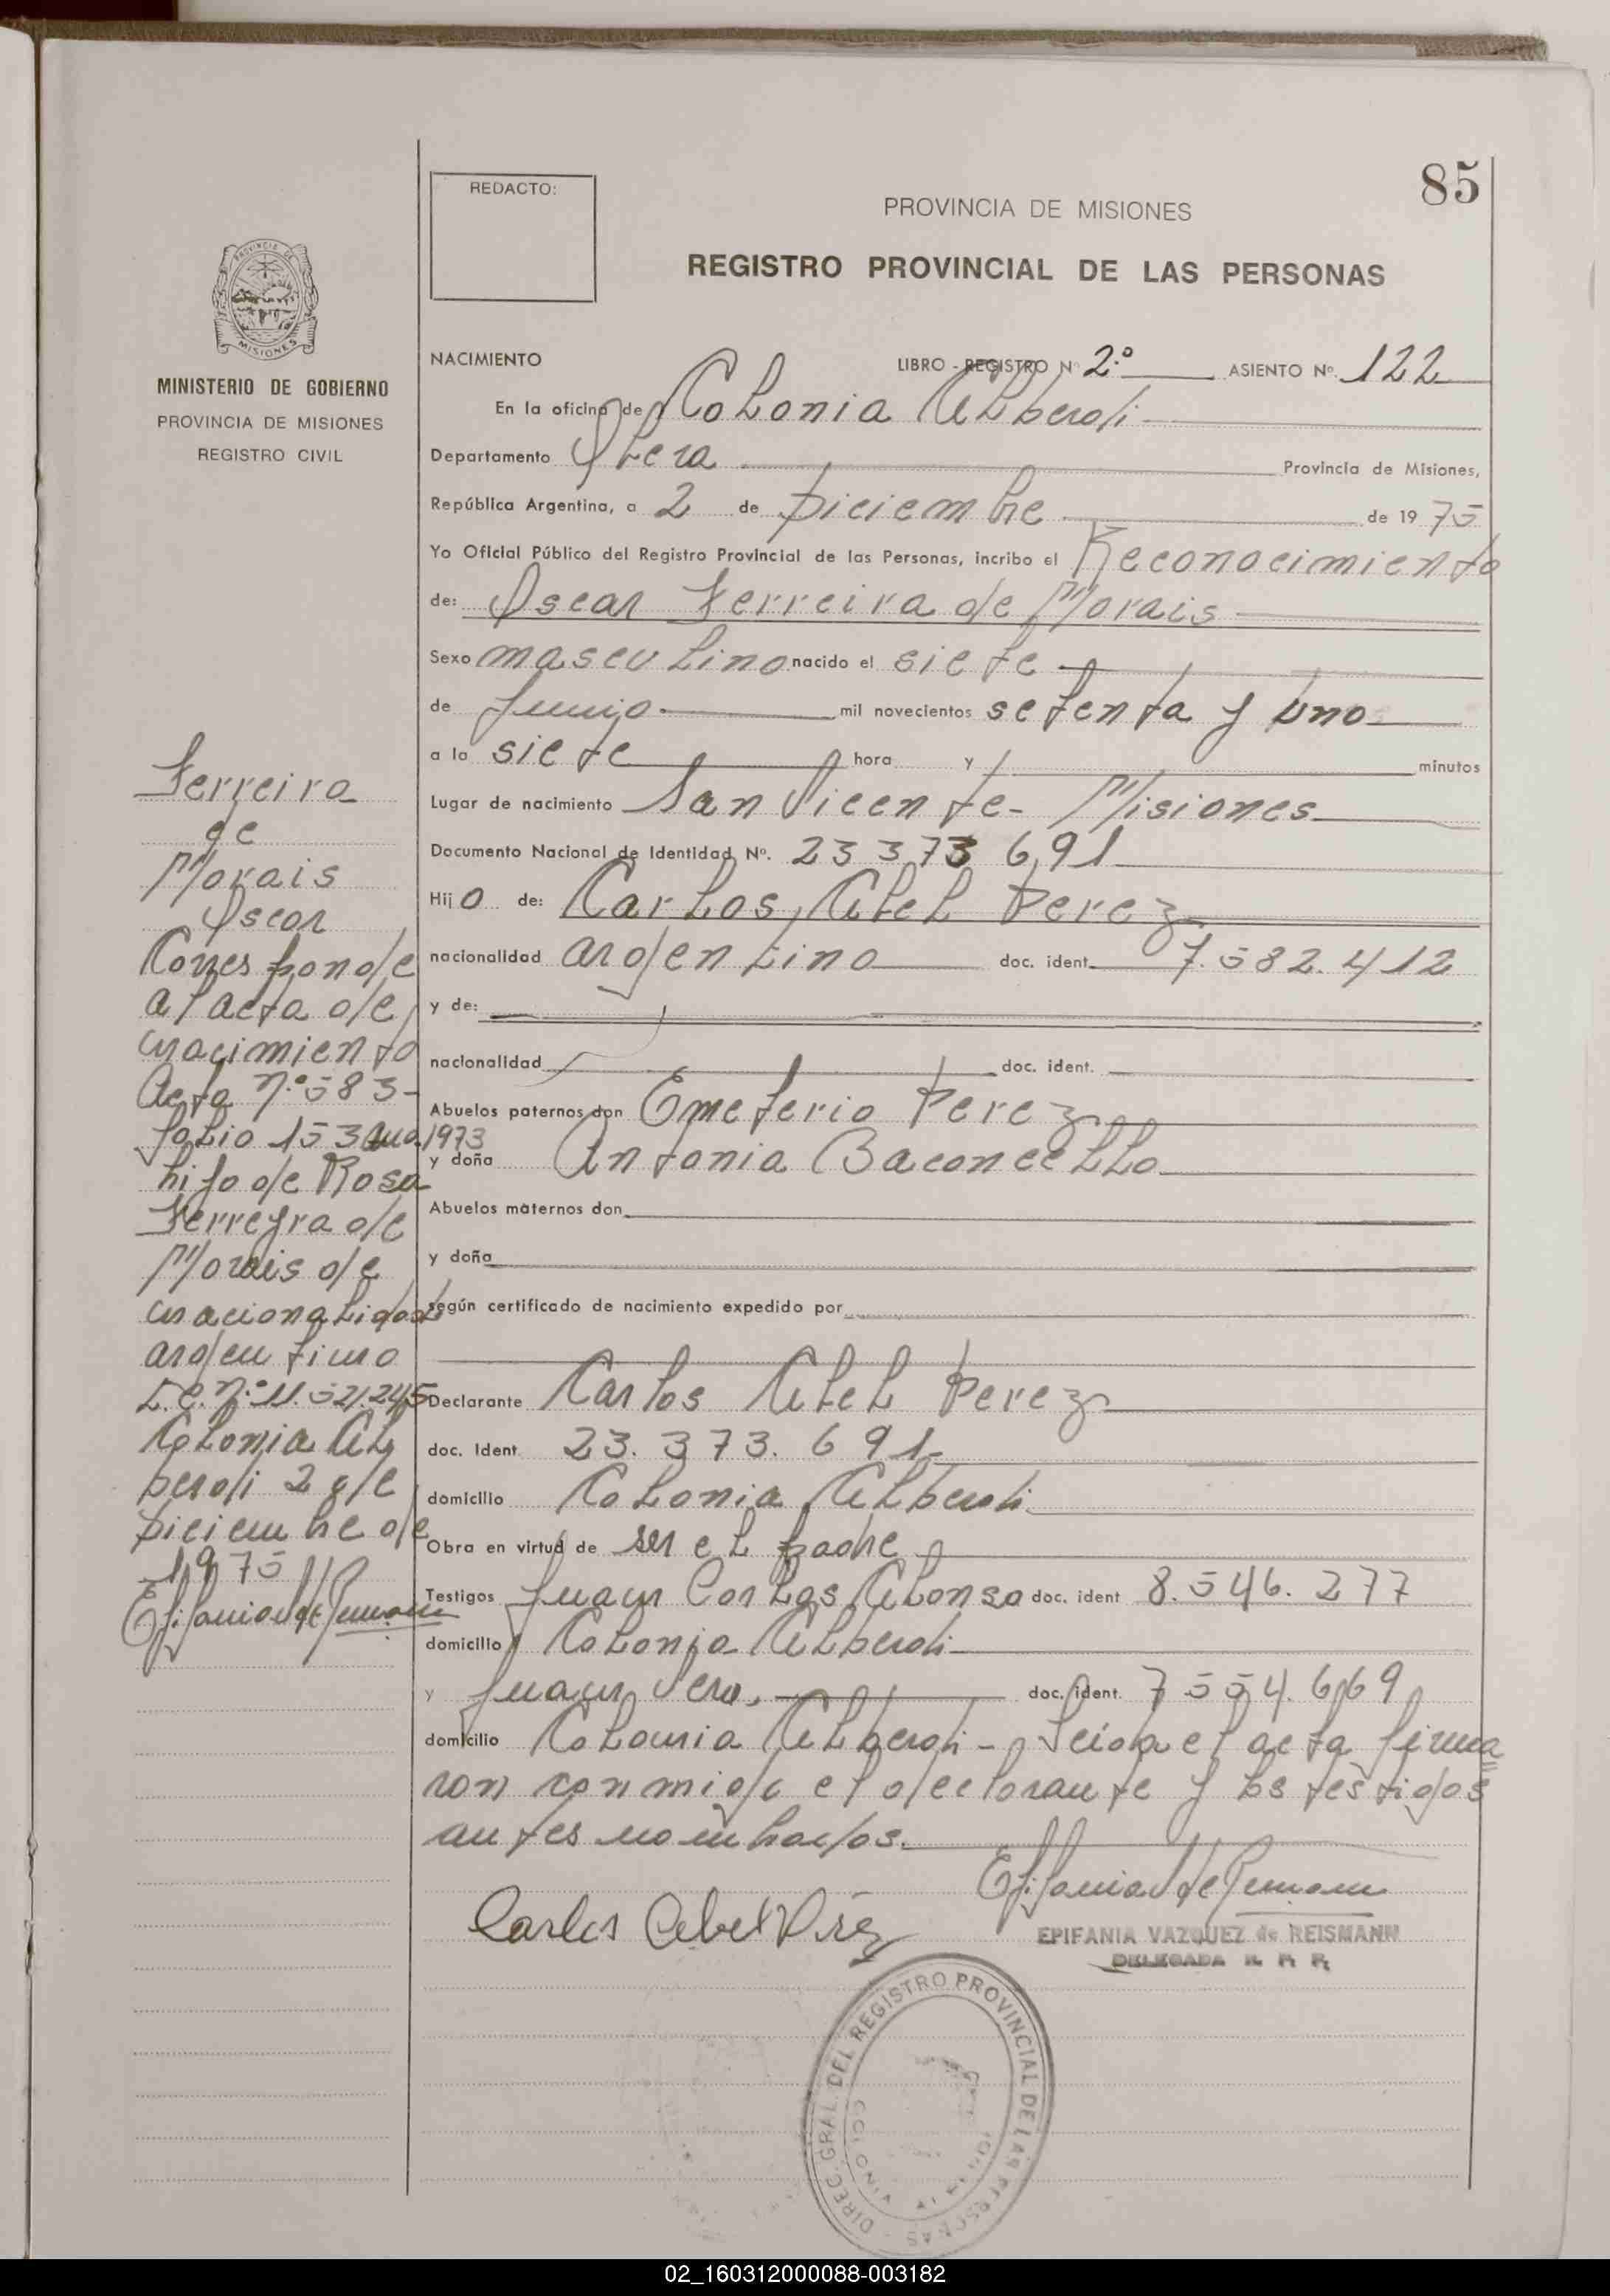 85
REDACTO:
PROVINCIA DE MISIONES
REGISTRO PROVINCIAL DE LAS PERSONAS
PROVINCIA DE
MISIONES
MINISTERIO DE GOBIERNO
PROVINCIA DE MISIONES
REGISTRO CIVIL
NACIMIENTO LIBRO - REGISTRO Nº 2º ASIENTO Nº. 122
En la oficina de Colonia Alberdi
Departamento Obera Provincia de Misiones,
República Argentina, a 2 de Diciembre de 1975
Yo Oficial Público del Registro Provincial de las Personas, incribo el Reconocimiento
de: Oscar Ferreira de Morais
Sexo masculino nacido el siete
de Junio mil novecientos setenta y uno
a la siete hora y minutos
Lugar de nacimiento San Vicente - Misiones
Documento Nacional de Identidad Nº. 23 373 691
Hijo de: Carlos Abel Perez
nacionalidad argentino doc. ident. 7.582.412
y de:
nacionalidad doc. ident.
Abuelos paternos don Emeterio Perez
y doña Antonia Baconcello
Abuelos maternos don
y doña
según certificado de nacimiento expedido por
Declarante Carlos Abel Perez
doc. Ident. 23.373.691
domicilio Colonia Alberdi
Obra en virtud de ser el padre
Testigos Juan Carlos Alonso doc. ident 8.546.277
domicilio Colonia Alberdi
y Juan Vera, doc. ident. 7554.669
domicilio Colonia Alberdi - Leida el acta firma
ron conmigo el declarante y los testigos
antes nombrados.
Carlos Abel Pérez
EPIFANIA VAZQUEZ de REISMANN
DELEGADA R. P. P.
DIREC. GRAL. DEL REGISTRO PROVINCIAL DE LAS PERSONAS
Ferreira
de
Morais
Oscar
Corresponde
al acta de
nacimiento
Acta nº 583-
folio 153 año 1973
hijo de Rosa
Ferreyra de
Morais de
nacionalidad
argentino
L.C. nº 11.521.245
Colonia Al
berdi 2 de
Diciembre de
1975
02_160312000088-003182